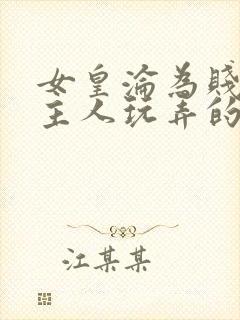 女皇淪為賤
主人玩弄的
江某某